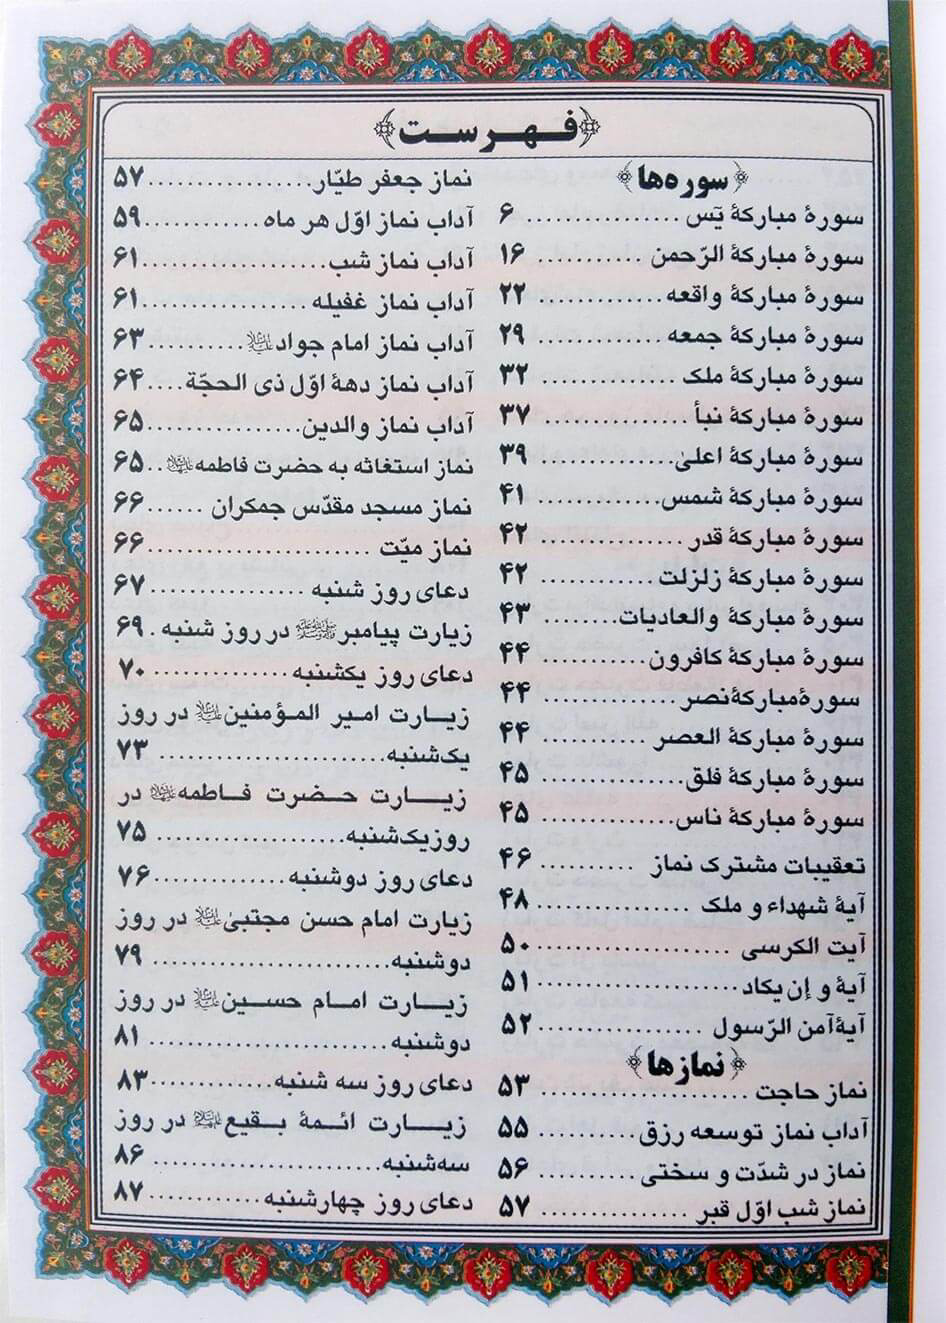 فهرست
سوره‌ها
سورهٔ مبارکهٔ یٓس ............ ۶
سورهٔ مبارکهٔ الرّحمن ............ ۱۶
سورهٔ مبارکهٔ واقعه ............ ۲۲
سورهٔ مبارکهٔ جمعه ............ ۲۹
سورهٔ مبارکهٔ ملک ............ ۳۲
سورهٔ مبارکهٔ نبأ ............ ۳۷
سورهٔ مبارکهٔ اعلی ............ ۳۹
سورهٔ مبارکهٔ شمس ............ ۴۱
سورهٔ مبارکهٔ قدر ............ ۴۲
سورهٔ مبارکهٔ زلزلت ............ ۴۲
سورهٔ مبارکهٔ والعادیات ........ ۴۳
سورهٔ مبارکهٔ کافرون ............ ۴۴
سورهٔ مبارکهٔ نصر ............ ۴۴
سورهٔ مبارکهٔ العصر ............ ۴۴
سورهٔ مبارکهٔ فلق ............ ۴۵
سورهٔ مبارکهٔ ناس ............ ۴۵
تعقیبات مشترک نماز .......... ۴۶
آیهٔ شهداء و ملک ............ ۴۸
آیت الکرسی ............ ۵۰
آیهٔ و إن یکاد ............ ۵۱
آیهٔ آمن الرّسول ............ ۵۲
نمازها
نماز حاجت ............ ۵۳
آداب نماز توسعه رزق .......... ۵۵
نماز در شدّت و سختی .......... ۵۶
نماز شب اوّل قبر ............ ۵۷
نماز جعفر طیّار ............ ۵۷
آداب نماز اوّل هر ماه ............ ۵۹
آداب نماز شب ............ ۶۱
آداب نماز غفیله ............ ۶۱
آداب نماز امام جواد علیه السلام ........ ۶۳
آداب نماز دههٔ اوّل ذی الحجّة .... ۶۴
آداب نماز والدین ............ ۶۵
نماز استغاثه به حضرت فاطمه علیها السلام .. ۶۵
نماز مسجد مقدّس جمکران ...... ۶۶
نماز میّت ............ ۶۶
دعای روز شنبه ............ ۶۷
زیارت پیامبر صلی الله علیه وآله وسلم در روز شنبه . ۶۹
دعای روز یکشنبه ............ ۷۰
زیارت امیر المؤمنین علیه السلام در روز
یک‌شنبه ............ ۷۳
زیارت حضرت فاطمه علیها السلام در
روز یک‌شنبه ............ ۷۵
دعای روز دوشنبه ............ ۷۶
زیارت امام حسن مجتبیٰ علیه السلام در روز
دوشنبه ............ ۷۹
زیارت امام حسین علیه السلام در روز
دوشنبه ............ ۸۱
دعای روز سه شنبه ............ ۸۳
زیارت ائمهٔ بقیع علیهم السلام در روز
سه‌شنبه ............ ۸۶
دعای روز چهارشنبه ............ ۸۷